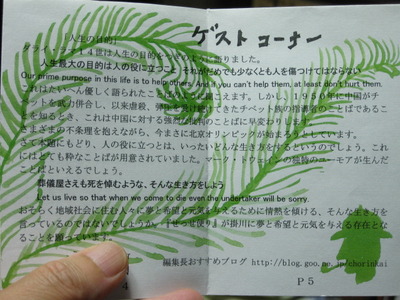 「人生の目的」
ゲスト コーナー
ダライ・ラマ14世は人生の目的をつぎのように語りました。
人生最大の目的は人の役に立つこと それがだめでも少なくとも人を傷つけてはならない
Our prime purpose in this life is to help others. And if you can't help them, at least don't hurt them.
これはたいへん優しく語られたこ えます。しかし1950年に中国がチ
ベットを武力併合し、以来虐殺、弾圧を受け続けてきたチベット族の指導者のことばであるこ
とを知るとき、これは中国に対する強烈な批判のことばに早変わりします。
さまざまの不条理を抱えながら、今まさに北京オリンピックが始まろうとしています。
さて本題にもどり、人の役に立つとは、いったいどんな生き方をするというのでしょう。これ
にはとても粋なことばが用意されていました。マーク・トウェインの独特のユーモアが生んだ
ことばといえるでしょう。
葬儀屋さえも死を悼むような、そんな生き方をしよう
Let us live so that when we come to die even the undertaker will be sorry.
おそらく地域社会に住む人々に夢と希望と元気を与えるために情熱を傾ける、そんな生き方を
言っているのではないでしょうか。『ぜっせ便り』が掛川に夢と希望と元気を与える存在とな
ることを願っています。
編集長おすすめブログ http://blog.goo.ne.jp/chorinkai
4
P5